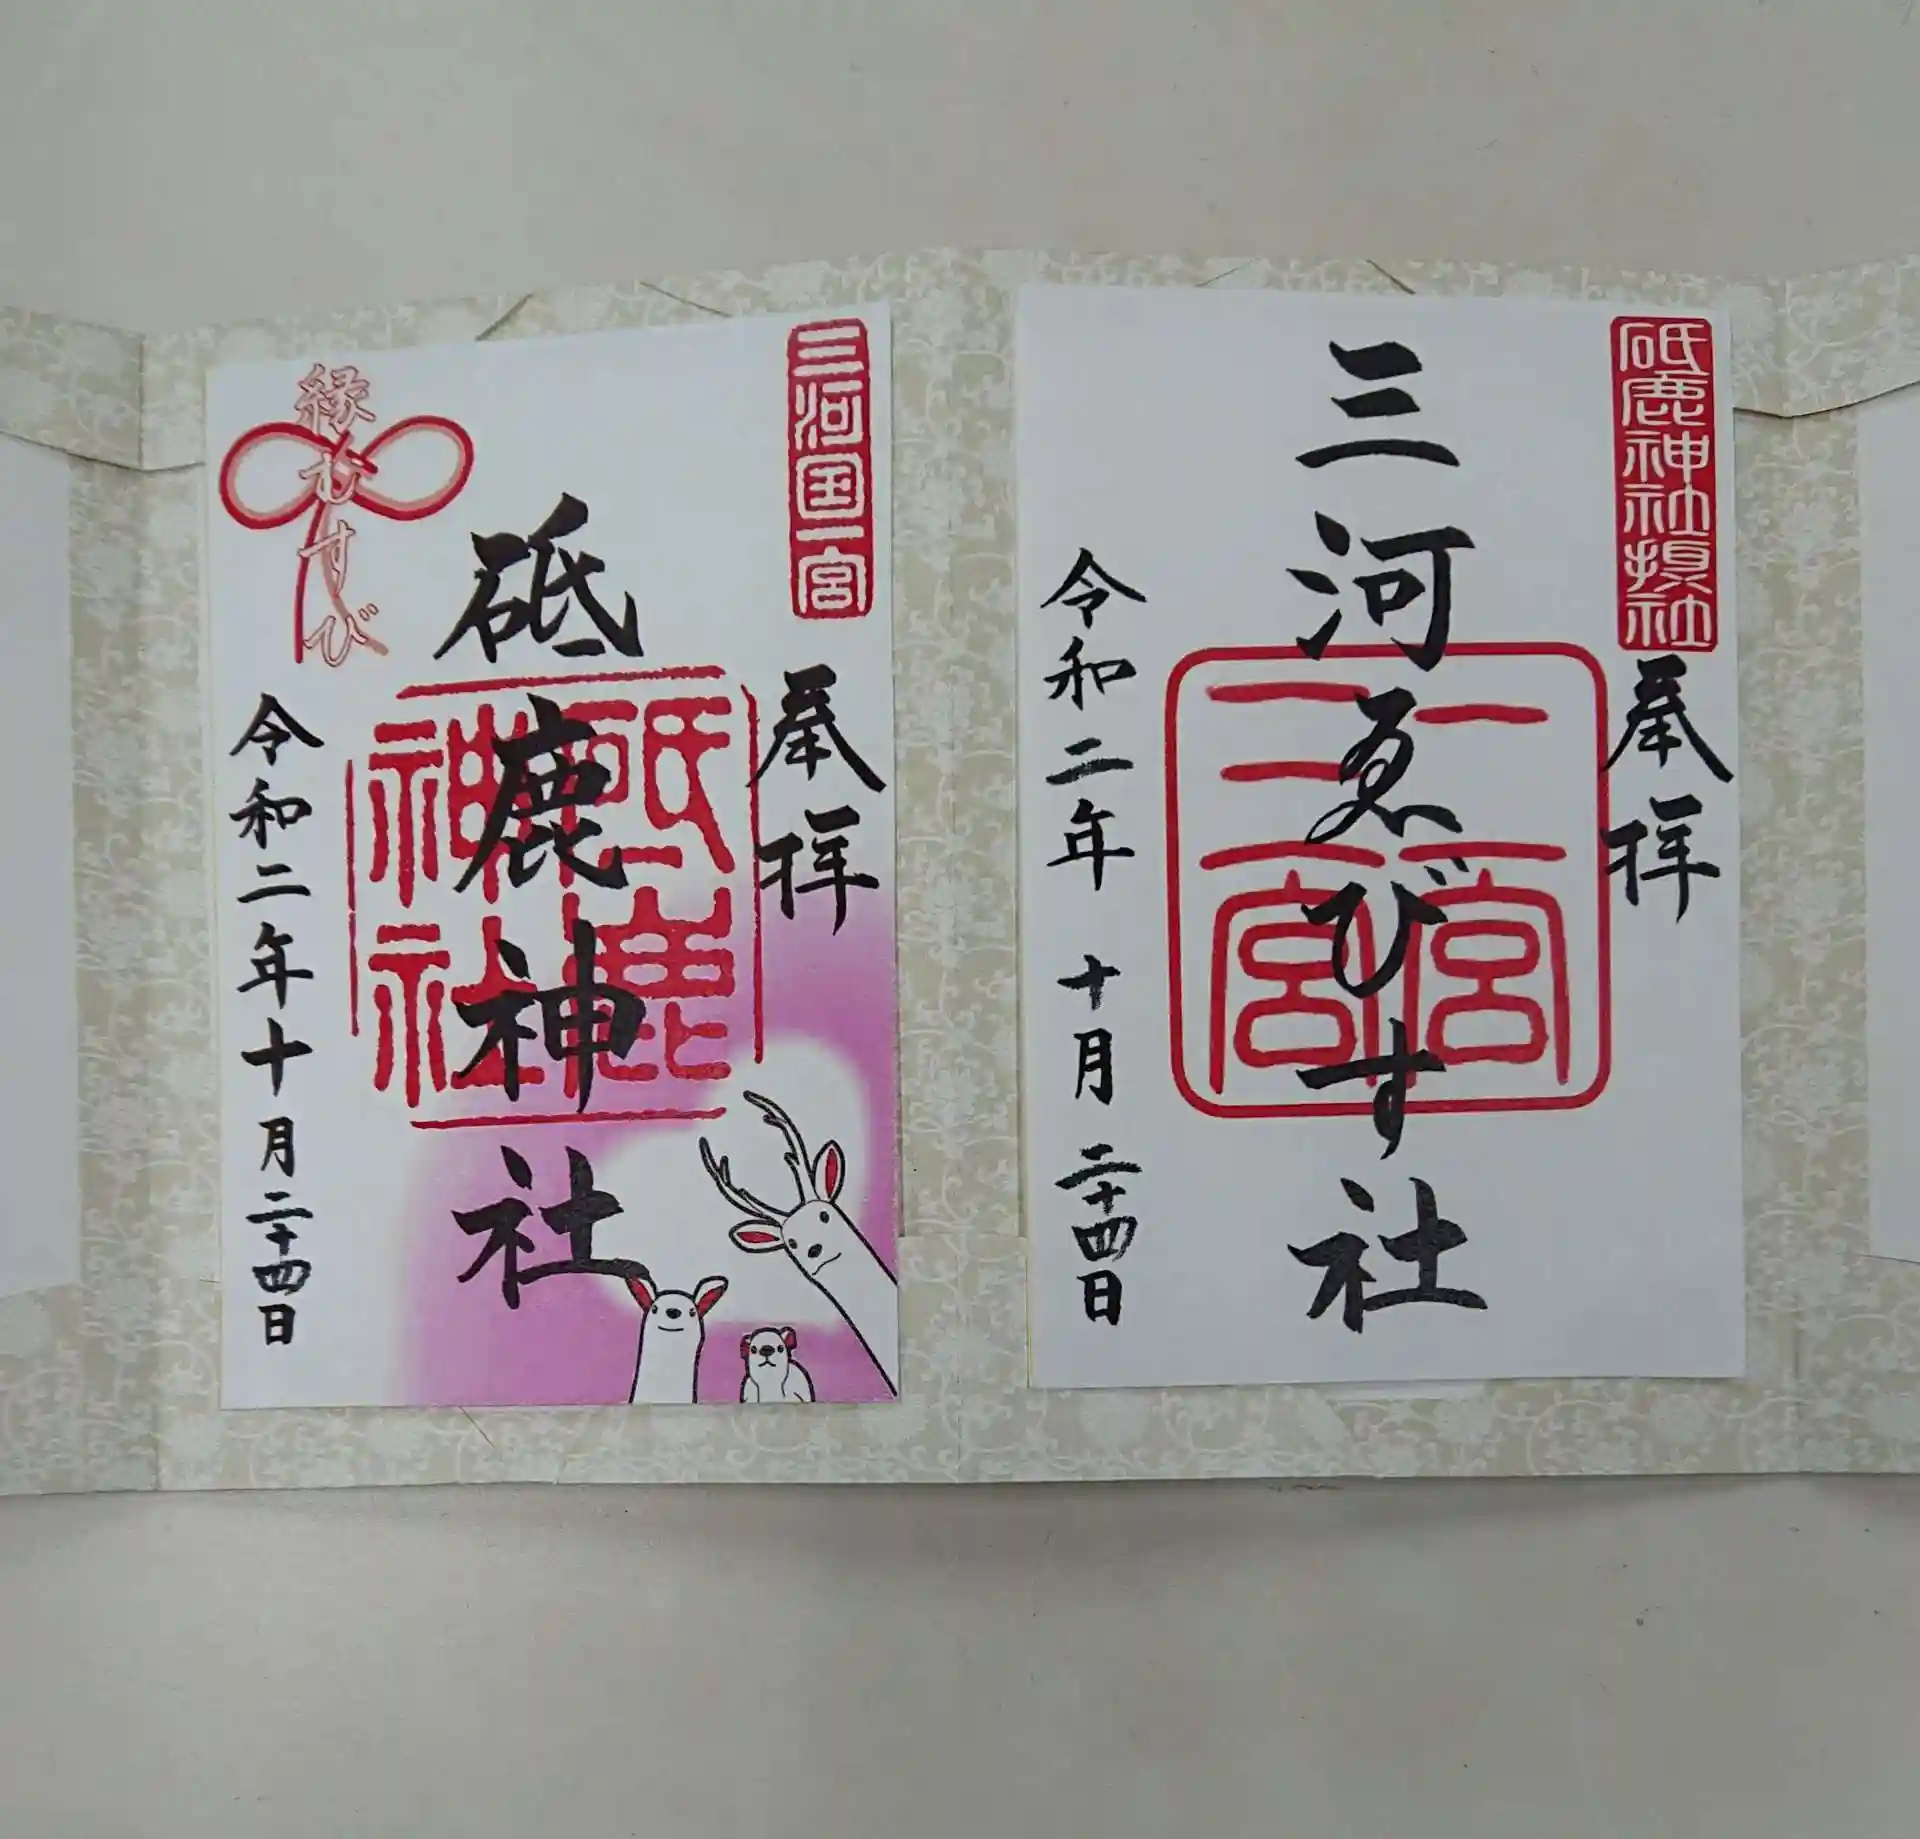 砥鹿神社摂社
奉拝
三河ゑびす社
二宮
三宮
令和二年 十月 二十四日
三河国一宮
奉拝
砥鹿神社
砥鹿
神社
縁むすび
令和二年十月二十四日